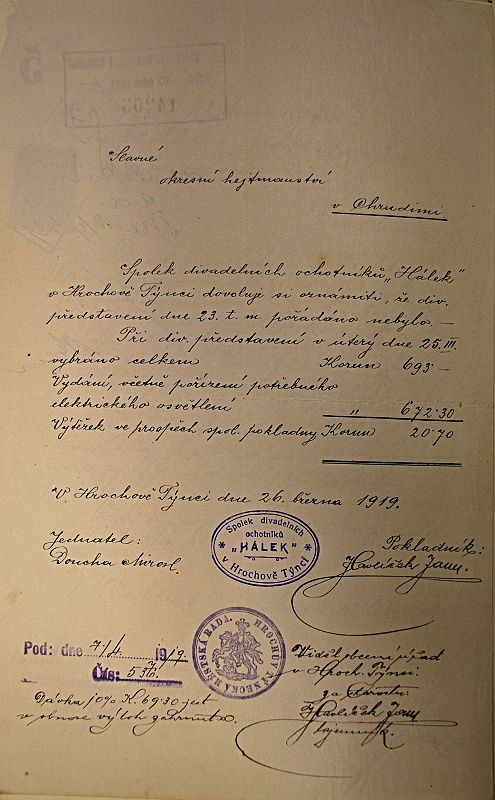 Slavné
okresní hejtmanství
v Chrudimi
Spolek divadelních ochotníků „Hálek"
v Hrochově Týnci dovoluje si oznámiti, že div.
představení dne 23. t. m. pořádáno nebylo. —
Při div. představení v úterý dne 25. III.
vybráno celkem Korun 693 —
Vydání, včetně pořízení potřebného
elektrického osvětlení „ 672·30
Výtěžek ve prospěch spol. pokladny Korun 20·70
V Hrochově Týnci dne 26. března 1919.
Jednatel:
Doucha Mirosl.
Spolek divadelních
ochotníků
"HÁLEK"
v Hrochově Týnci
Pokladník:
Havlíček Jan.
MĚSTSKÁ RADA HROCHŮV TÝNEC
Pod: dne 7/4 1919
Čís: 536.
Dávka 10% K. 69·30 jest
v obnose výloh zahrnuta.
Viděl obecní úřad
v Hroch. Týnci.
za starostu:
Havlíček Jan
tajemník.
14208